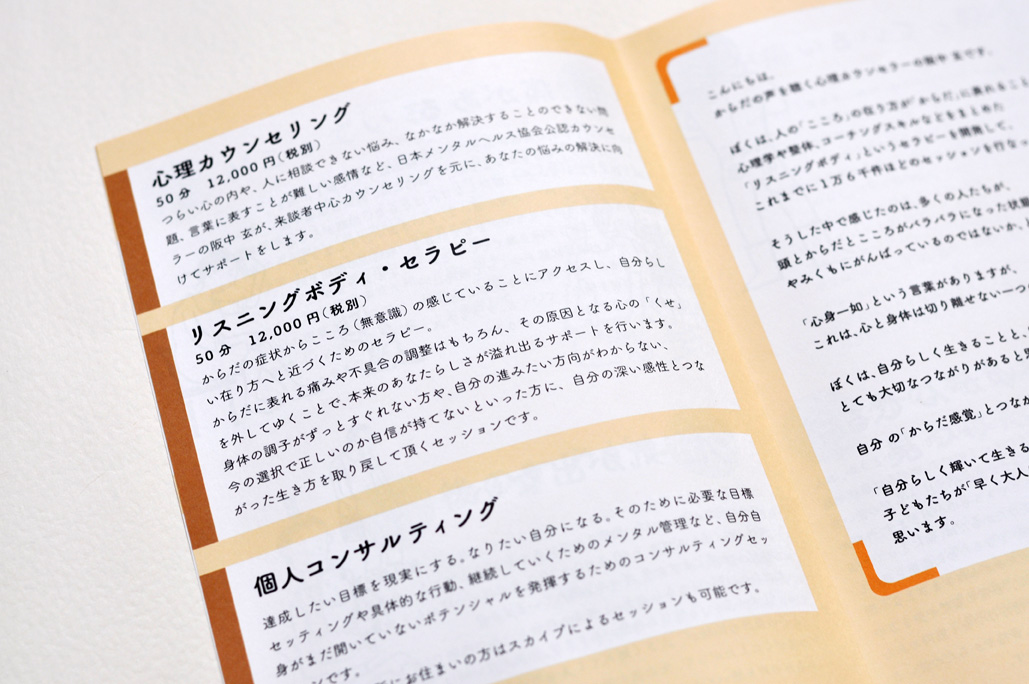 心理カウンセリング
50分 12,000円(税別)
つらい心の内や、人に相談できない悩み、なかなか解決することのできない問
題、言葉に表すことが難しい感情など、日本メンタルヘルス協会公認カウンセ
ラーの阪中 玄が、来談者中心カウンセリングを元に、あなたの悩みの解決に向
けてサポートをします。
リスニングボディ・セラピー
50分 12,000円(税別)
からだの症状からこころ(無意識)の感じていることにアクセスし、自分らし
い在り方へと近づくためのセラピー。
からだに表れる痛みや不具合の調整はもちろん、その原因となる心の「くせ」
を外してゆくことで、本来のあなたらしさが溢れ出るサポートを行います。
身体の調子がずっとすぐれない方や、自分の進みたい方向がわからない、
今の選択で正しいのか自信が持てないといった方に、自分の深い感性とつな
がった生き方を取り戻して頂くセッションです。
個人コンサルティング
達成したい目標を現実にする。なりたい自分になる。そのために必要な目標
セッティングや具体的な行動、継続していくためのメンタル管理など、自分自
身がまだ開いていないポテンシャルを発揮するためのコンサルティングセッ
ンです。
にお住まいの方はスカイプによるセッションも可能です。
こんにちは、
からだの声を聴く心理カウンセラーの阪中 玄です。
ぼくは、人の「こころ」の在り方が「からだ」に表れること
心理学や整体、コーチングスキルなどをまとめた
「リスニングボディ」というセラピーを開発して、
これまでに1万6千件ほどのセッションを行なっ
そうした中で感じたのは、多くの人たちが、
頭とからだとこころがバラバラになった状態
やみくもにがんばっているのではないか、
「心身一如」という言葉がありますが、
これは、心と身体は切り離せない一つ
ぼくは、自分らしく生きることと、
とても大切なつながりがあると思
自分 の「からだ感覚」とつな
「自分らしく輝いて生きる
子どもたちが「早く大人
思います。